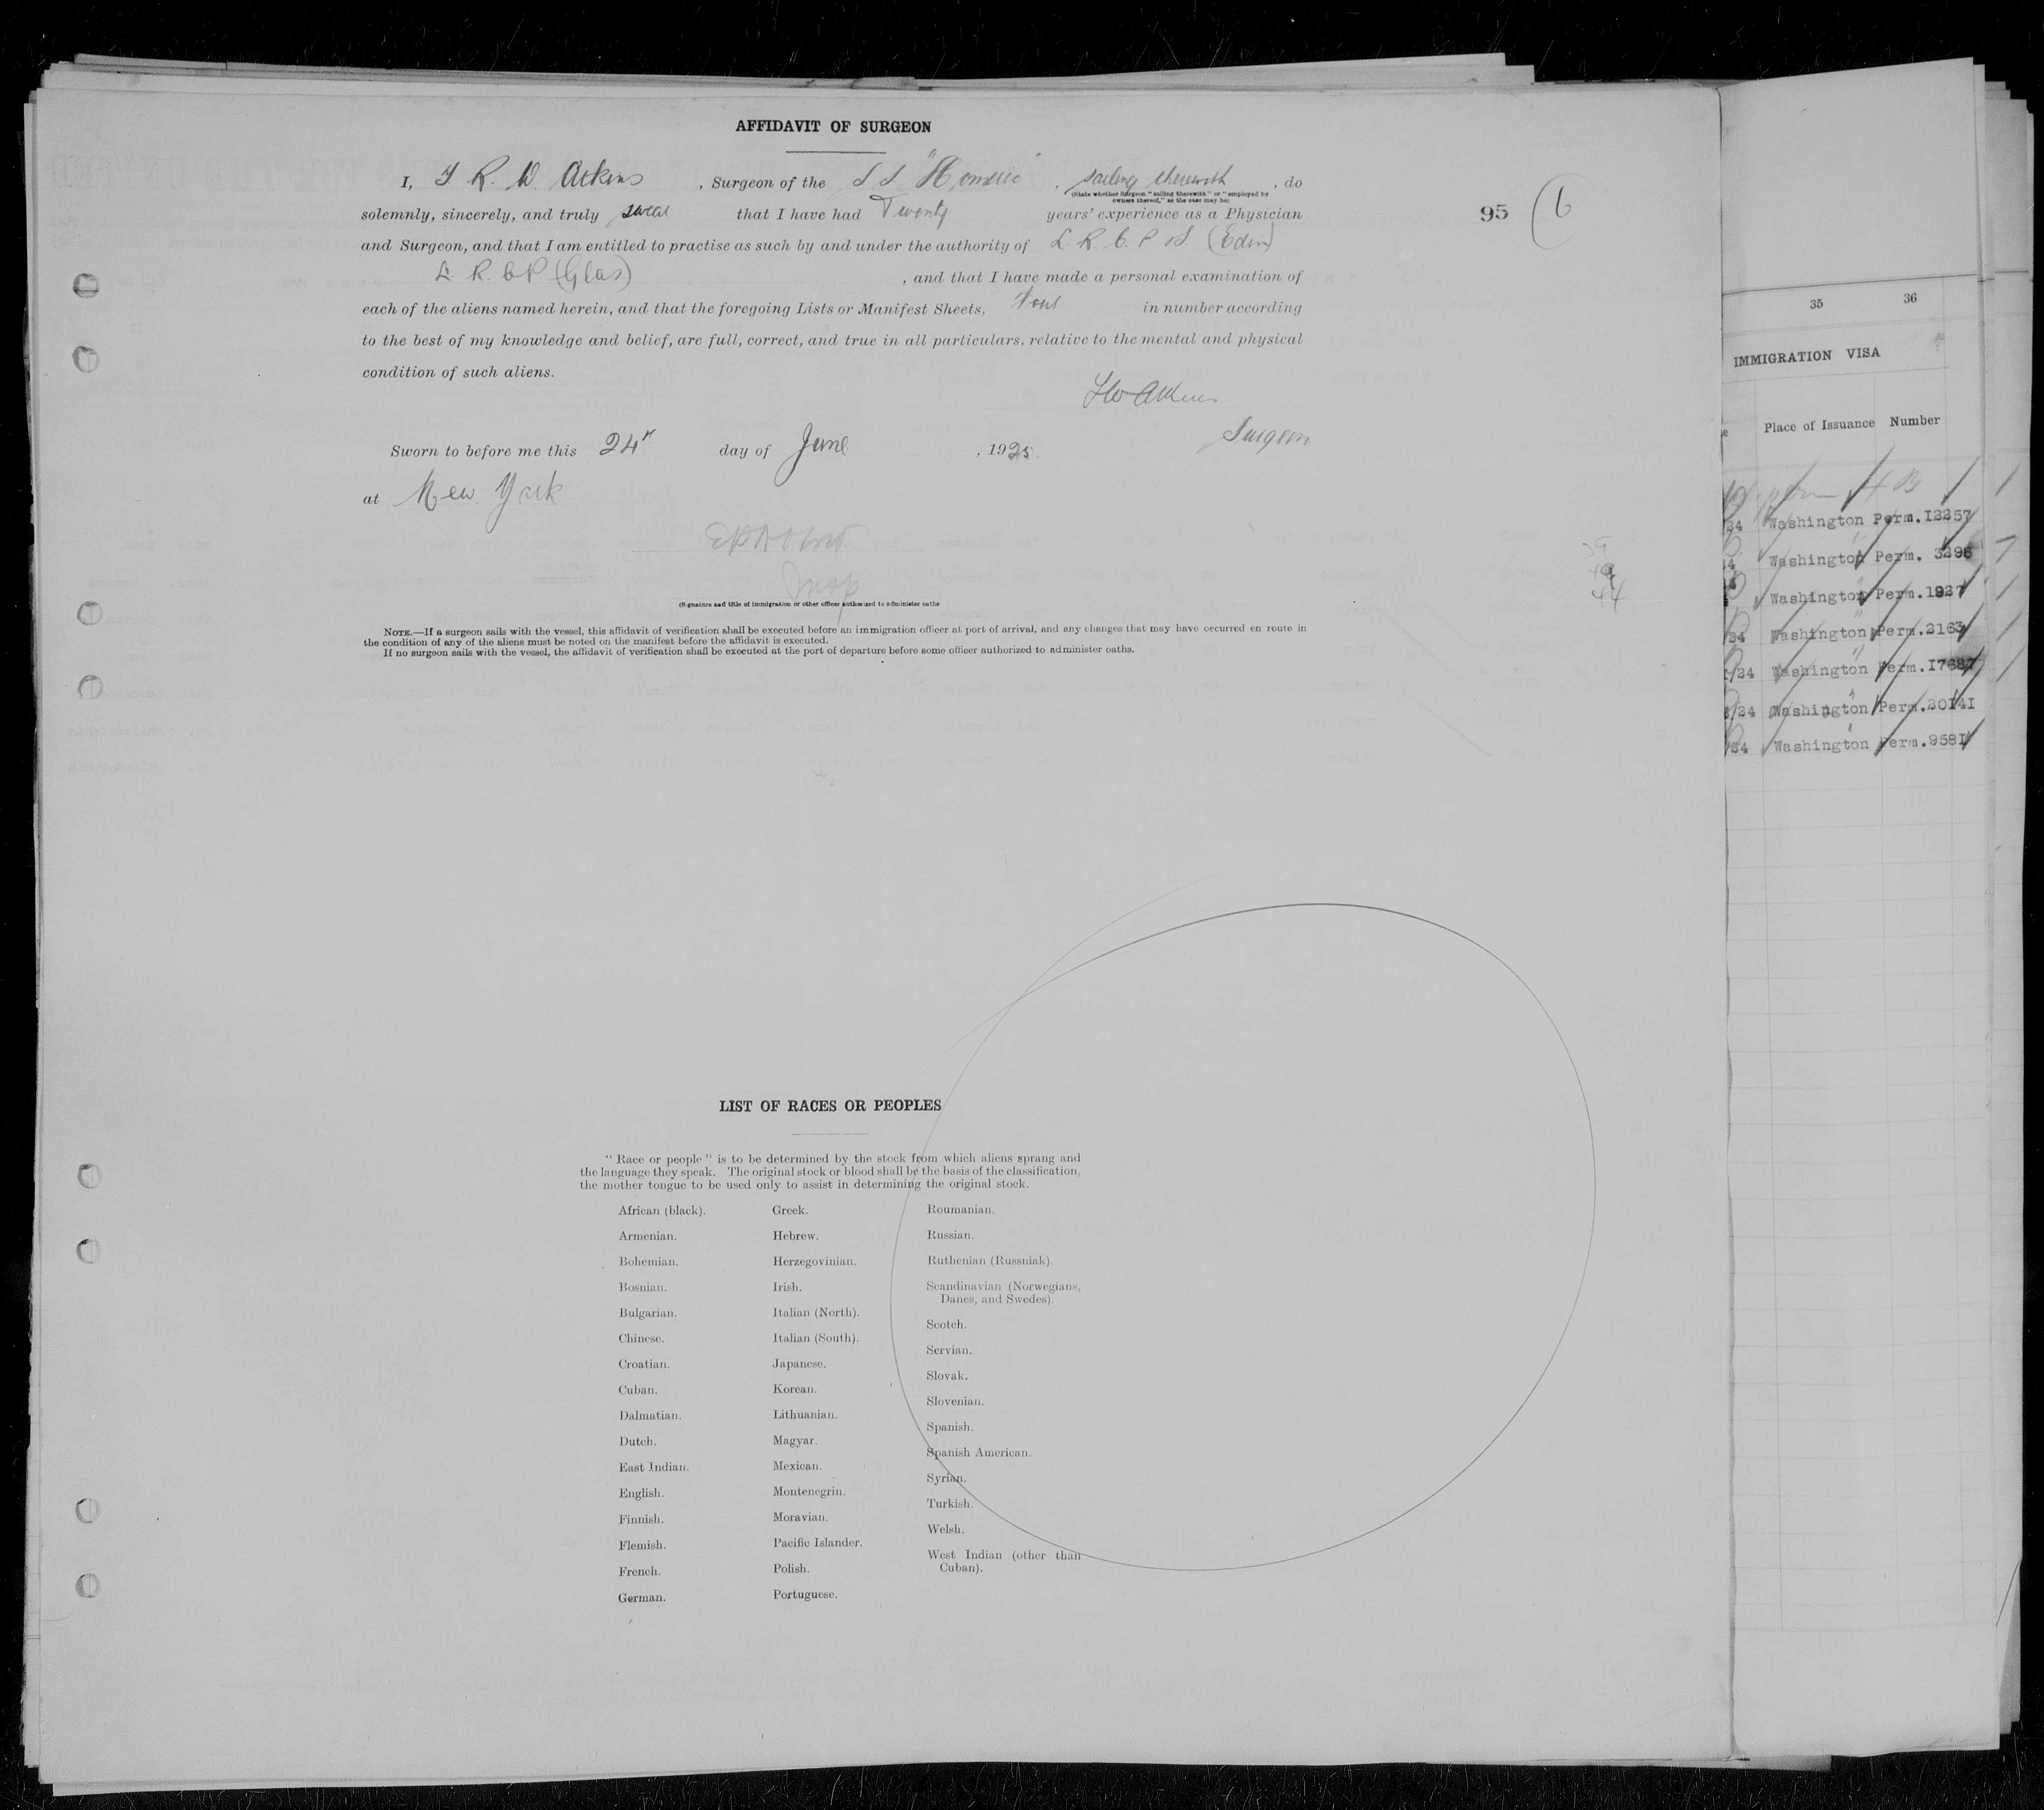 AFFIDAVIT OF SURGEON
I, R. W. Atkins, Surgeon of the S S "Homeric", sailing therewith, do
(State whether Surgeon "sailing therewith" or "employed by
owners thereof," as the case may be)
solemnly, sincerely, and truly swear that I have had Twenty years' experience as a Physician
95 (6
and Surgeon, and that I am entitled to practise as such by and under the authority of L. R. C. P & S (Edin)
L. R. C P (Glas), and that I have made a personal examination of
each of the aliens named herein, and that the foregoing Lists or Manifest Sheets, four in number according
to the best of my knowledge and belief, are full, correct, and true in all particulars, relative to the mental and physical
condition of such aliens.
Atkins
Surgeon
Sworn to before me this 24th day of June, 1925.
at New York
Insp
(Signature and title of immigration or other officer authorised to administer oaths
NOTE.—If a surgeon sails with the vessel, this affidavit of verification shall be executed before an immigration officer at port of arrival, and any changes that may have occurred en route in
the condition of any of the aliens must be noted on the manifest before the affidavit is executed.
If no surgeon sails with the vessel, the affidavit of verification shall be executed at the port of departure before some officer authorized to administer oaths.
LIST OF RACES OR PEOPLES
"Race or people" is to be determined by the stock from which aliens sprang and
the language they speak. The original stock or blood shall be the basis of the classification,
the mother tongue to be used only to assist in determining the original stock.
African (black).
Armenian.
Bohemian.
Bosnian.
Bulgarian.
Chinese.
Croatian.
Cuban.
Dalmatian.
Dutch.
East Indian.
English.
Finnish.
Flemish.
French.
German.
Greek.
Hebrew.
Herzegovinian.
Irish.
Italian (North).
Italian (South).
Japanese.
Korean.
Lithuanian.
Magyar.
Mexican.
Montenegrin.
Moravian.
Pacific Islander.
Polish.
Portuguese.
Roumanian.
Russian.
Ruthenian (Russniak).
Scandinavian (Norwegians,
Danes, and Swedes).
Scotch.
Servian.
Slovak.
Slovenian.
Spanish.
Spanish American.
Syrian.
Turkish.
Welsh.
West Indian (other than
Cuban).
35 36
IMMIGRATION VISA
Place of Issuance Number
24 Washington Perm.I2257
Washington Perm. 3296
Washington Perm.1927
24 Washington Perm.2163
/24 Washington Perm.I7687
/24 Washington Perm.20I4I
/24 Washington Perm.958I